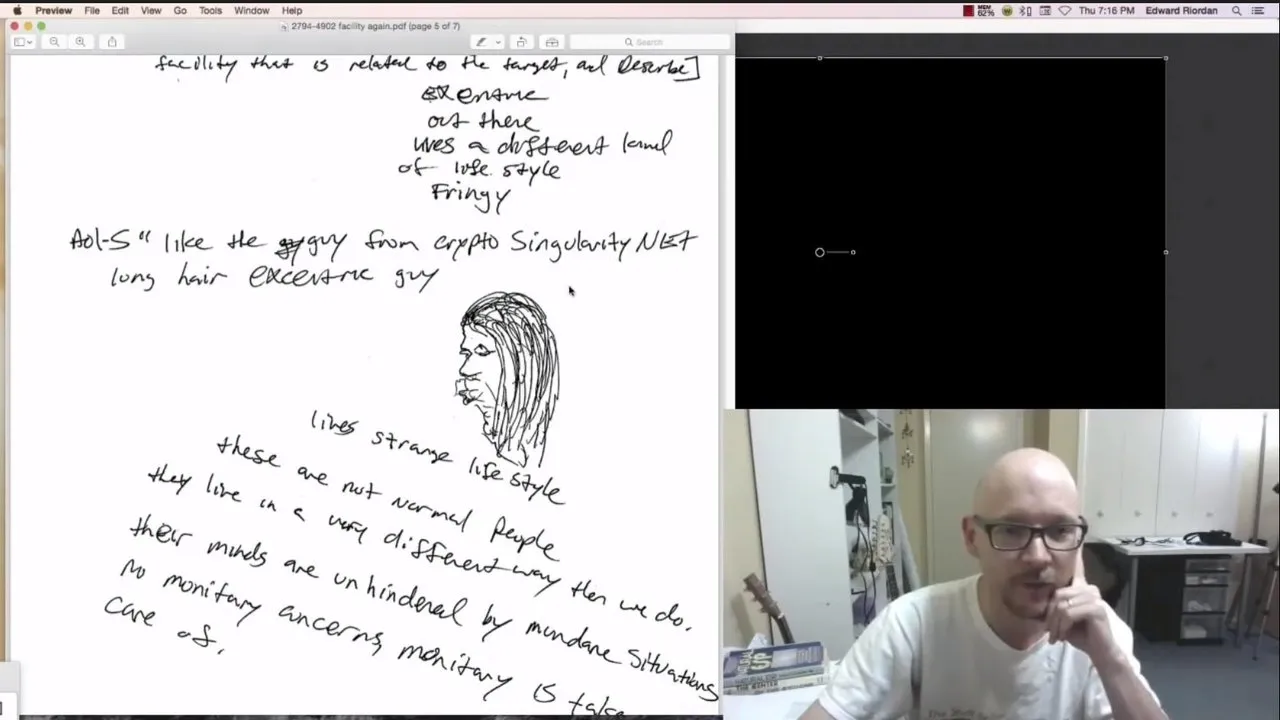 Preview File Edit View Go Tools Window Help
MEM 62% Thu 7:16 PM Edward Riordan
2794-4902 facility again.pdf (page 5 of 7)
Search
facility that is related to the target, and Describe]
exentric
out there
lives a different kind
of life style
Fringy
Aol-S " like the guy from crypto Singularity NET
long hair excentric guy
lives strange life style
these are not normal people
they live in a very different way then we do.
their minds are unhindered by mundane situations
No monitary concerns, monitary is taken
care of.
THE CENTER